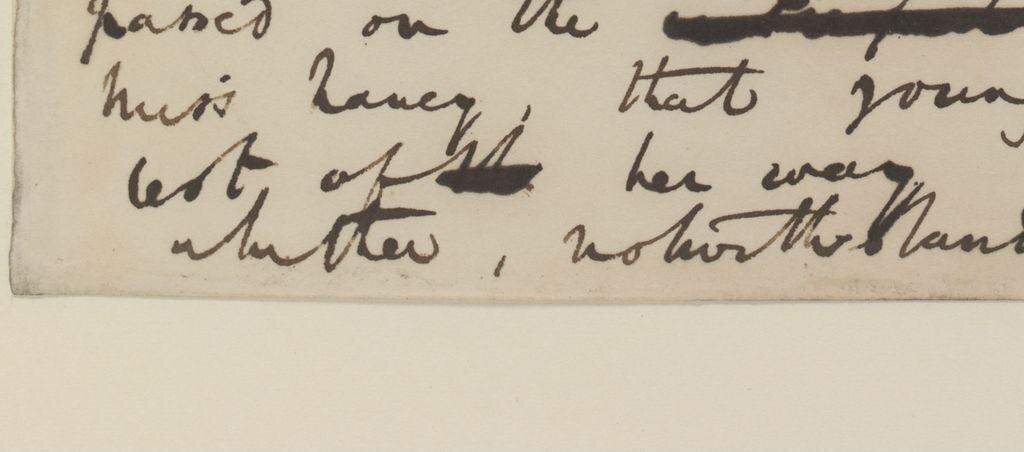 passed on the
Miss Nancy, that youn
rest of her way
whether, notwithstand